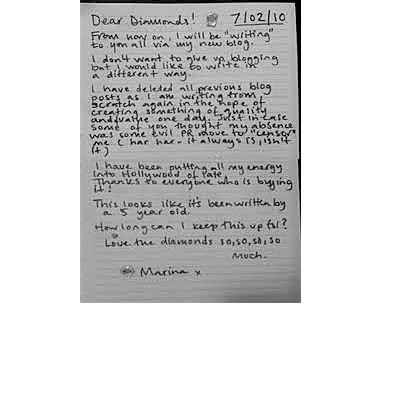 Dear Diamonds! 7/02/10
From now on, I will be "writing"
to you all via my new blog.
I don't want to give up blogging
but I would like to write in
a different way.
I have deleted all previous blog
posts as I am writing from
scratch again in the hope of
creating something of quality
and value one day. Just in case
some of you thought my absence
was some evil PR move to "censor"
me (har har - it always is, isn't
it)
I have been putting all my energy
into Hollywood of late.
Thanks to everyone who is buying
it!
This looks like it's been written by
a 5 year old.
How long can I keep this up for?
Love the diamonds so, so, so, so
much.
Marina x